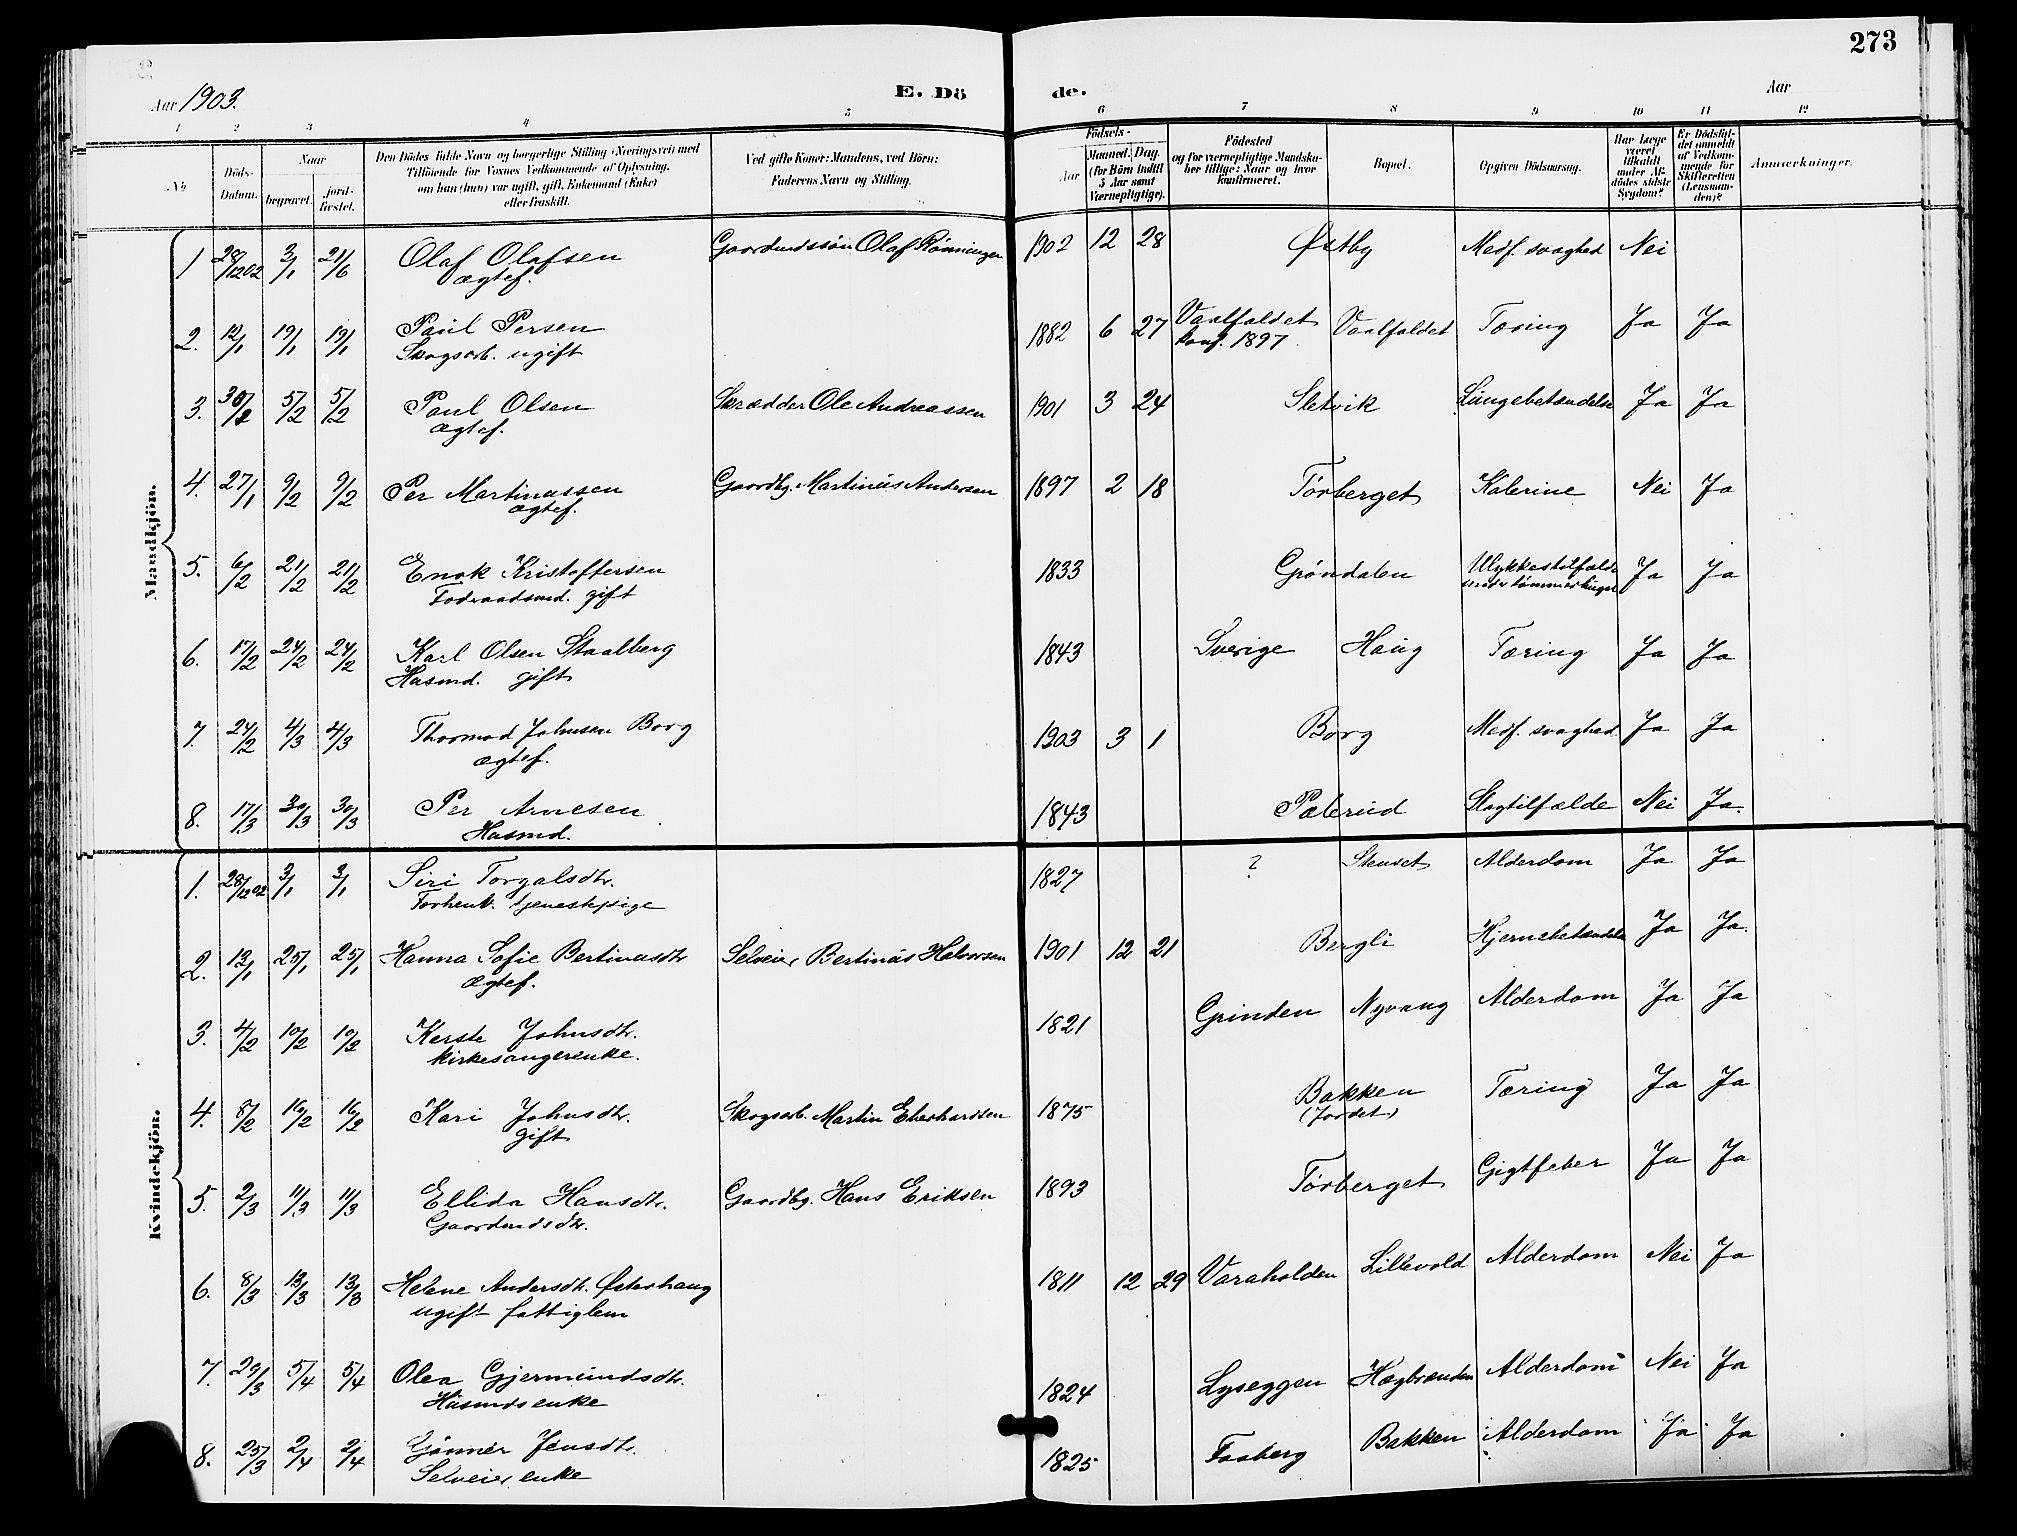 273
Aar 1903.
E. Dö
de.
Aar
1 2 3 4 5 6 7 8 9 10 11 12
No
Döds-
Datum.
Naar
begravet.
jord-
fæstet.
Den Dödes fulde Navn og borgerlige Stilling (Næringsvei) med
Tilföiende for Voxnes Vedkommende af Oplysning,
om han (hun) var ugift, gift, Enkemand (Enke)
eller fraskilt.
Ved gifte Koner: Mandens, ved Börn:
Faderens Navn og Stilling.
Födsels-
Aar
Maaned.
Dag
(for Börn indtil
5 Aar samt
Værnepligtige).
Födested
og for værnepligtige Mandska-
ber tillige: Naar og hvor
konfirmeret.
Bopæl.
Opgiven Dödsaarsag.
Har Læge
været
tilkaldt
under Af-
dödes sidste
Sygdom?
Er Dödsfal-
det anmeldt
af Vedkom-
mende for
Skifteretten
(Lensman-
den)?
Anmærkninger.
Mandkjön.
1 28/12 02 3/1 21/6 Olaf Olafsen Gaardmdssön Olaf Rönningen 1902 12 28 Østby Medf. svaghed Nei
ægtef.
2. 12/1 19/1 19/1 Paul Persen 1882 6 27 Vaalfaldet Vaalfaldet Tæring Ja Ja
Skogsarb. ugift konf. 1897.
3. 5/2 5/2 Paul Olsen Skrædder Ole Andreassen 1901 3 24 Sletvik Lungebetændelse Ja Ja
ægtef.
4. 27/1 9/2 9/2 Per Martinussen Gaardbg. Martinus Andersen 1897 2 18 Törberget Kolerine Nei Ja
ægtef.
5. 6/2 21/2 21/2 Enok Kristoffersen 1833 Gröndalen Ulykkestilfælde Ja Ja
Foderaadsmd. gift under tømmerhugst
6. 17/2 24/2 24/2 Karl Olsen Staalberg 1843 Sverige Haug Tæring Ja Ja
Husmd. gift
7. 24/2 4/3 4/3 Thormod Johnsen Borg 1903 3 1 Borg Medf. svaghed Ja Ja
ægtef.
8. 17/3 30/3 30/3 Per Arnesen 1843 Pålerud Slagtilfælde Nei Ja.
Husmd.
Kvindekjön.
1. 28/12 02 3/1 3/1 Siri Torgalsdtr. 1827 ? Stenset Alderdom Ja Ja
Forhenv. tjenestepige
2. 13/1 25/1 25/1 Hanna Sofie Bertinusdtr Selveier Bertinus Halvorsen 1901 12 21 Bergli Hjernebetændelse Ja Ja.
ægtef.
3. 4/2 10/2 10/2 Kerste Johnsdtr. 1821 Grinden Nyvang Alderdom Ja Ja
kirkesangerenke.
4. 8/2 16/2 16/2 Kari Johnsdtr. Skogsarb. Martin Eberhardsen 1875 Bakken Tæring Ja Ja
gift (Jordet)
5. 2/3 11/3 11/3 Ellida Hansdtr. Gaardbg. Hans Eriksen 1893 Törberget Gigtfeber Ja Ja
Gaardmdsdtr.
6. 8/3 13/3 13/3 Helene Andersdtr. Østerhaug 1811 12 29 Varaholden Lillevold Alderdom Nei Ja
ugift fattiglem
7. 29/3 5/4 5/4 Olea Gjermundsdtr. 1824 Lyseggen Hægbranden Alderdom Nei Ja
Husmdsenke
8. 25/3 2/4 2/4 Gönner Jensdtr. 1825 Faaberg Bakken Alderdom Ja Ja
Selveierenke